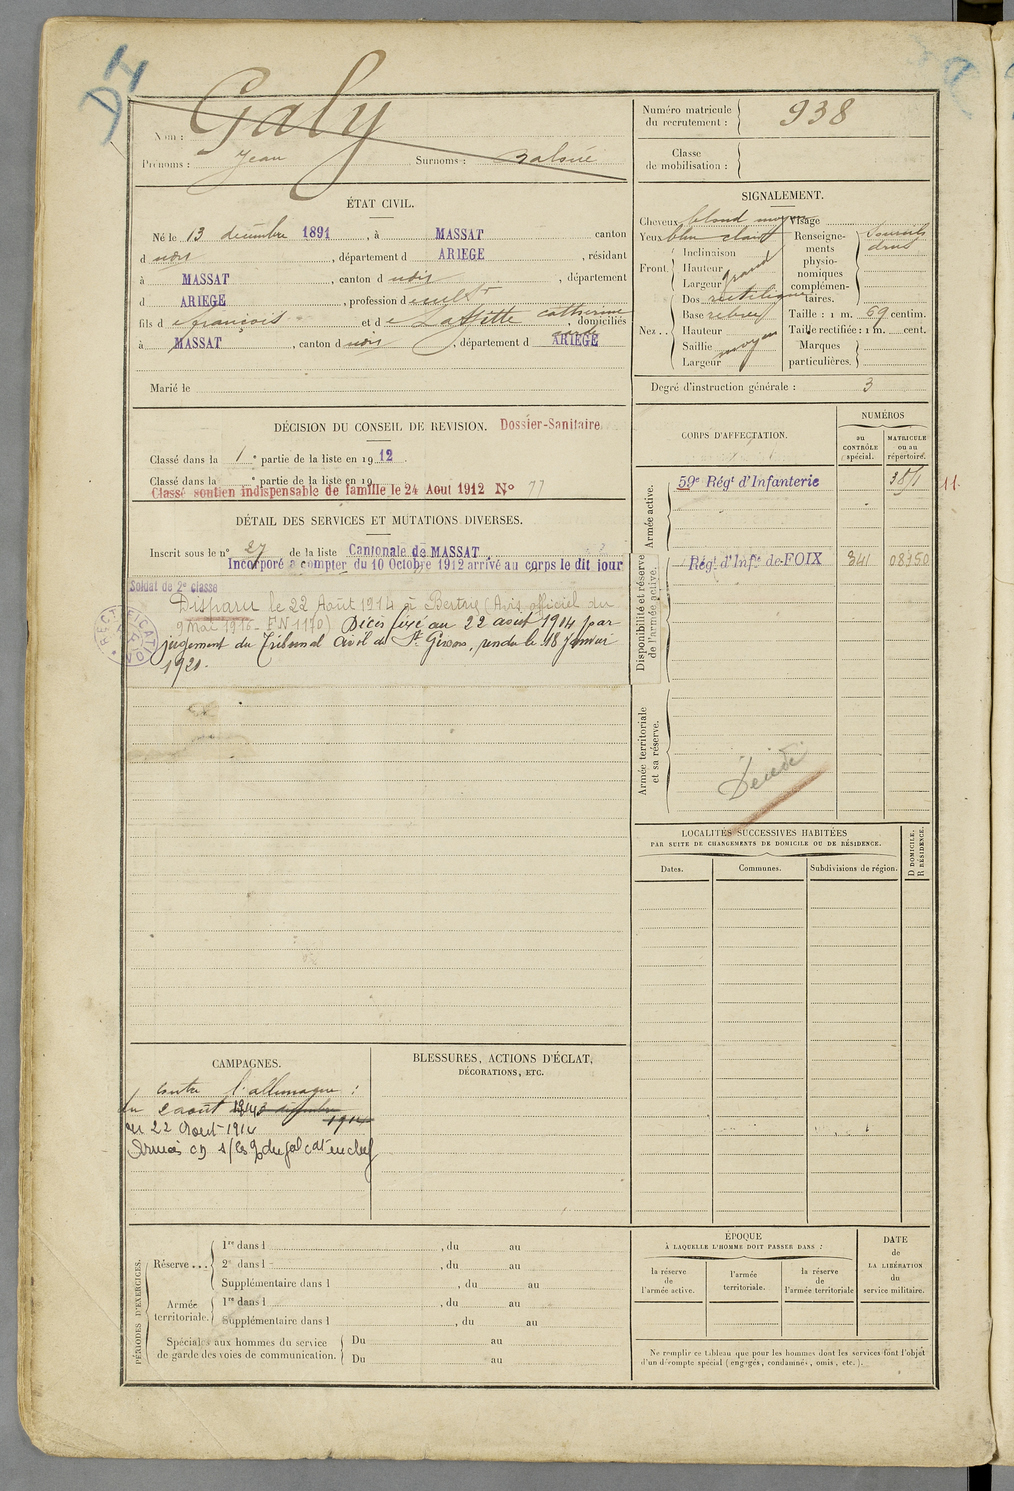 Nom : Galy
Prénoms : Jean Surnoms :
Numéro matricule du recrutement : 938
Classe de mobilisation :
ÉTAT CIVIL.
Né le 13 décembre 1891, à MASSAT canton
d udit, département d ARIEGE, résidant
à MASSAT, canton d udit, département
d ARIEGE, profession d cultr
fils d e françois et d e Laffitte catherine, domiciliés
à MASSAT, canton d udit, département d ARIEGE
Marié le
SIGNALEMENT.
Cheveux blond moyen Visage
Yeux bleu clair
Front. Inclinaison
Hauteur
Largeur grand
Nez .. Dos rectiligne
Base
Hauteur
Saillie moyen
Largeur
Renseignements physionomiques complémentaires. Sourcils drus
Taille : 1 m. 69 centim.
Taille rectifiée : 1 m. cent.
Marques particulières.
Degré d'instruction générale : 3
DÉCISION DU CONSEIL DE REVISION. Dossier-Sanitaire
Classé dans la 1e partie de la liste en 1912.
Classé dans la e partie de la liste en 19
Classé soutien indispensable de famille le 24 Aout 1912 No 77
DÉTAIL DES SERVICES ET MUTATIONS DIVERSES.
Inscrit sous le no 27 de la liste Cantonale de MASSAT
Incorporé à compter du 10 Octobre 1912 arrivé au corps le dit jour
Soldat de 2e classe
Disparu le 22 Août 1914 à Bertrix (Avis officiel du
9 Mai 1916 - FN 1170) Décès fixé au 22 aout 1914 par
jugement du Tribunal Civil de St Girons, rendu le 18 Janvier
1921.
RECTIFICATION
CORPS D'AFFECTATION.
NUMÉROS
au CONTRÔLE spécial.
MATRICULE ou au répertoire.
Armée active.
59e Régt d'Infanterie
11.
Disponibilité et réserve de l'armée active.
Régt d'Infie de FOIX 341 08350
Armée territoriale et sa réserve.
Décédé
LOCALITÉS SUCCESSIVES HABITÉES
PAR SUITE DE CHANGEMENTS DE DOMICILE OU DE RÉSIDENCE.
D DOMICILE. R RÉSIDENCE.
Dates. Communes. Subdivisions de région.
CAMPAGNES.
contre l'allemagne :
du 2 août 1914
au 22 Aout 1914
BLESSURES, ACTIONS D'ÉCLAT,
DÉCORATIONS, ETC.
PÉRIODES D'EXERCICES.
Réserve ... 1re dans l , du au
2e dans l , du au
Supplémentaire dans l , du au
Armée territoriale. 1re dans l , du au
Supplémentaire dans l , du au
Spéciales aux hommes du service de garde des voies de communication. Du au
Du au
ÉPOQUE
À LAQUELLE L'HOMME DOIT PASSER DANS :
la réserve de l'armée active.
l'armée territoriale.
la réserve de l'armée territoriale
DATE de LA LIBÉRATION du service militaire.
Ne remplir ce tableau que pour les hommes dont les services font l'objet
d'un décompte spécial (engagés, condamnés, omis, etc.).